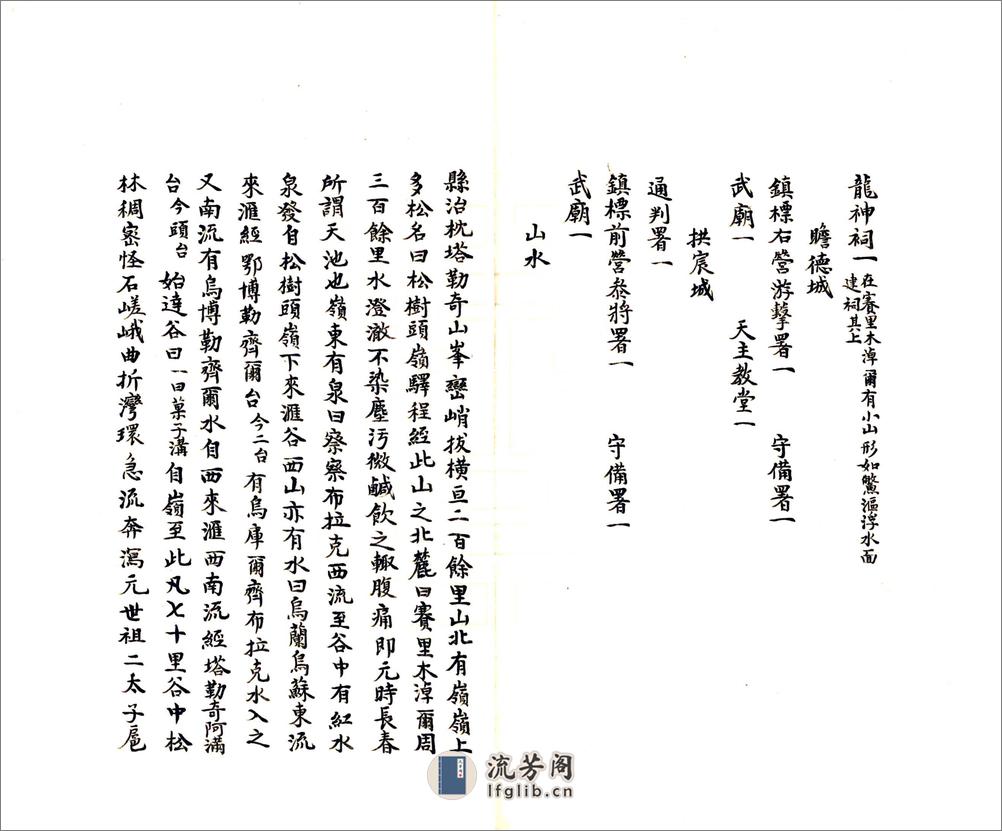 龍神祠一 在賽里木淖爾有小山形如鰲漚浮水面
建祠其上
瞻德城
鎮標右營游擊署一 守備署一
武廟一 天主教堂一
拱宸城
通判署一
鎮標前營叅將署一 守備署一
武廟一
山水
縣治枕塔勒奇山峯巒峭拔橫亘二百餘里山北有嶺嶺上
多松名曰松樹頭嶺驛程經此山之北麓曰賽里木淖爾周
三百餘里水澄澈不染塵污微鹹飲之輙腹痛即元時長春
所謂天池也嶺東有泉曰察察布拉克西流至谷中有紅水
泉發自松樹頭嶺下來滙谷西山亦有水曰烏蘭烏蘇東流
來滙經鄂博勒齊爾台 今二台 有烏庫爾齊布拉克水入之
又南流有烏博勒齊爾水自西來滙西南流經塔勒奇阿滿
台 今頭台 始達谷曰 一曰菓子溝 自嶺至此凡七十里谷中松
林稠密怪石嵯峨曲折灣環急流奔瀉元世祖二太子扈
流芳阁
lfglib.cn